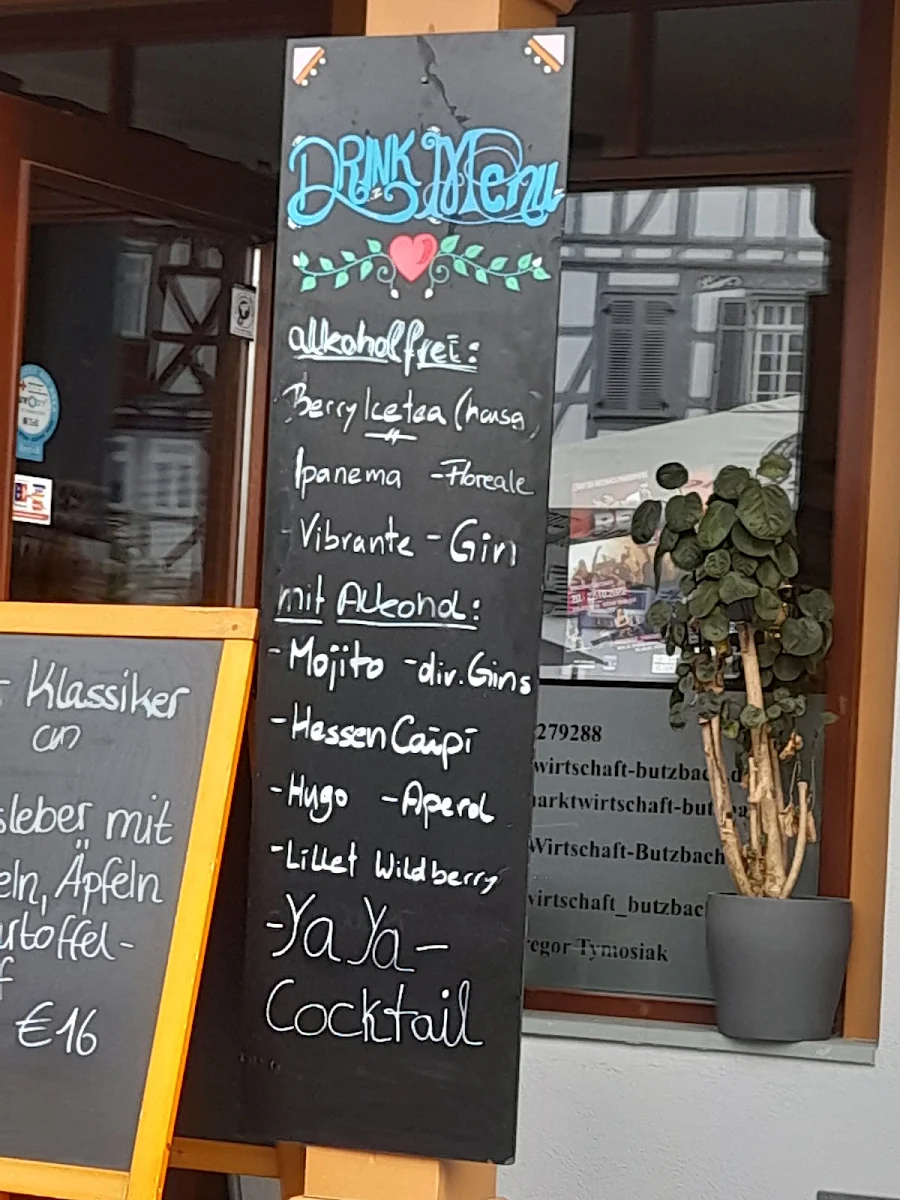 DRINK Menu
alkoholfrei:
Berry Icetea (hausg)
Ipanema - Floreale
- Vibrante - Gin
mit Alkohol:
- Mojito - div. Gins
- Hessen Caipi
- Hugo - Aperol
- Lillet Wildberry
- Ya Ya -
Cocktail
Klassiker
sleber mit
eln, Äpfeln
rtoffel-
f
€16
279288
wirtschaft-butzbach.d
arktwirtschaft-butzba
Wirtschaft-Butzbach
wirtschaft_butzbac
regor Tymosiak